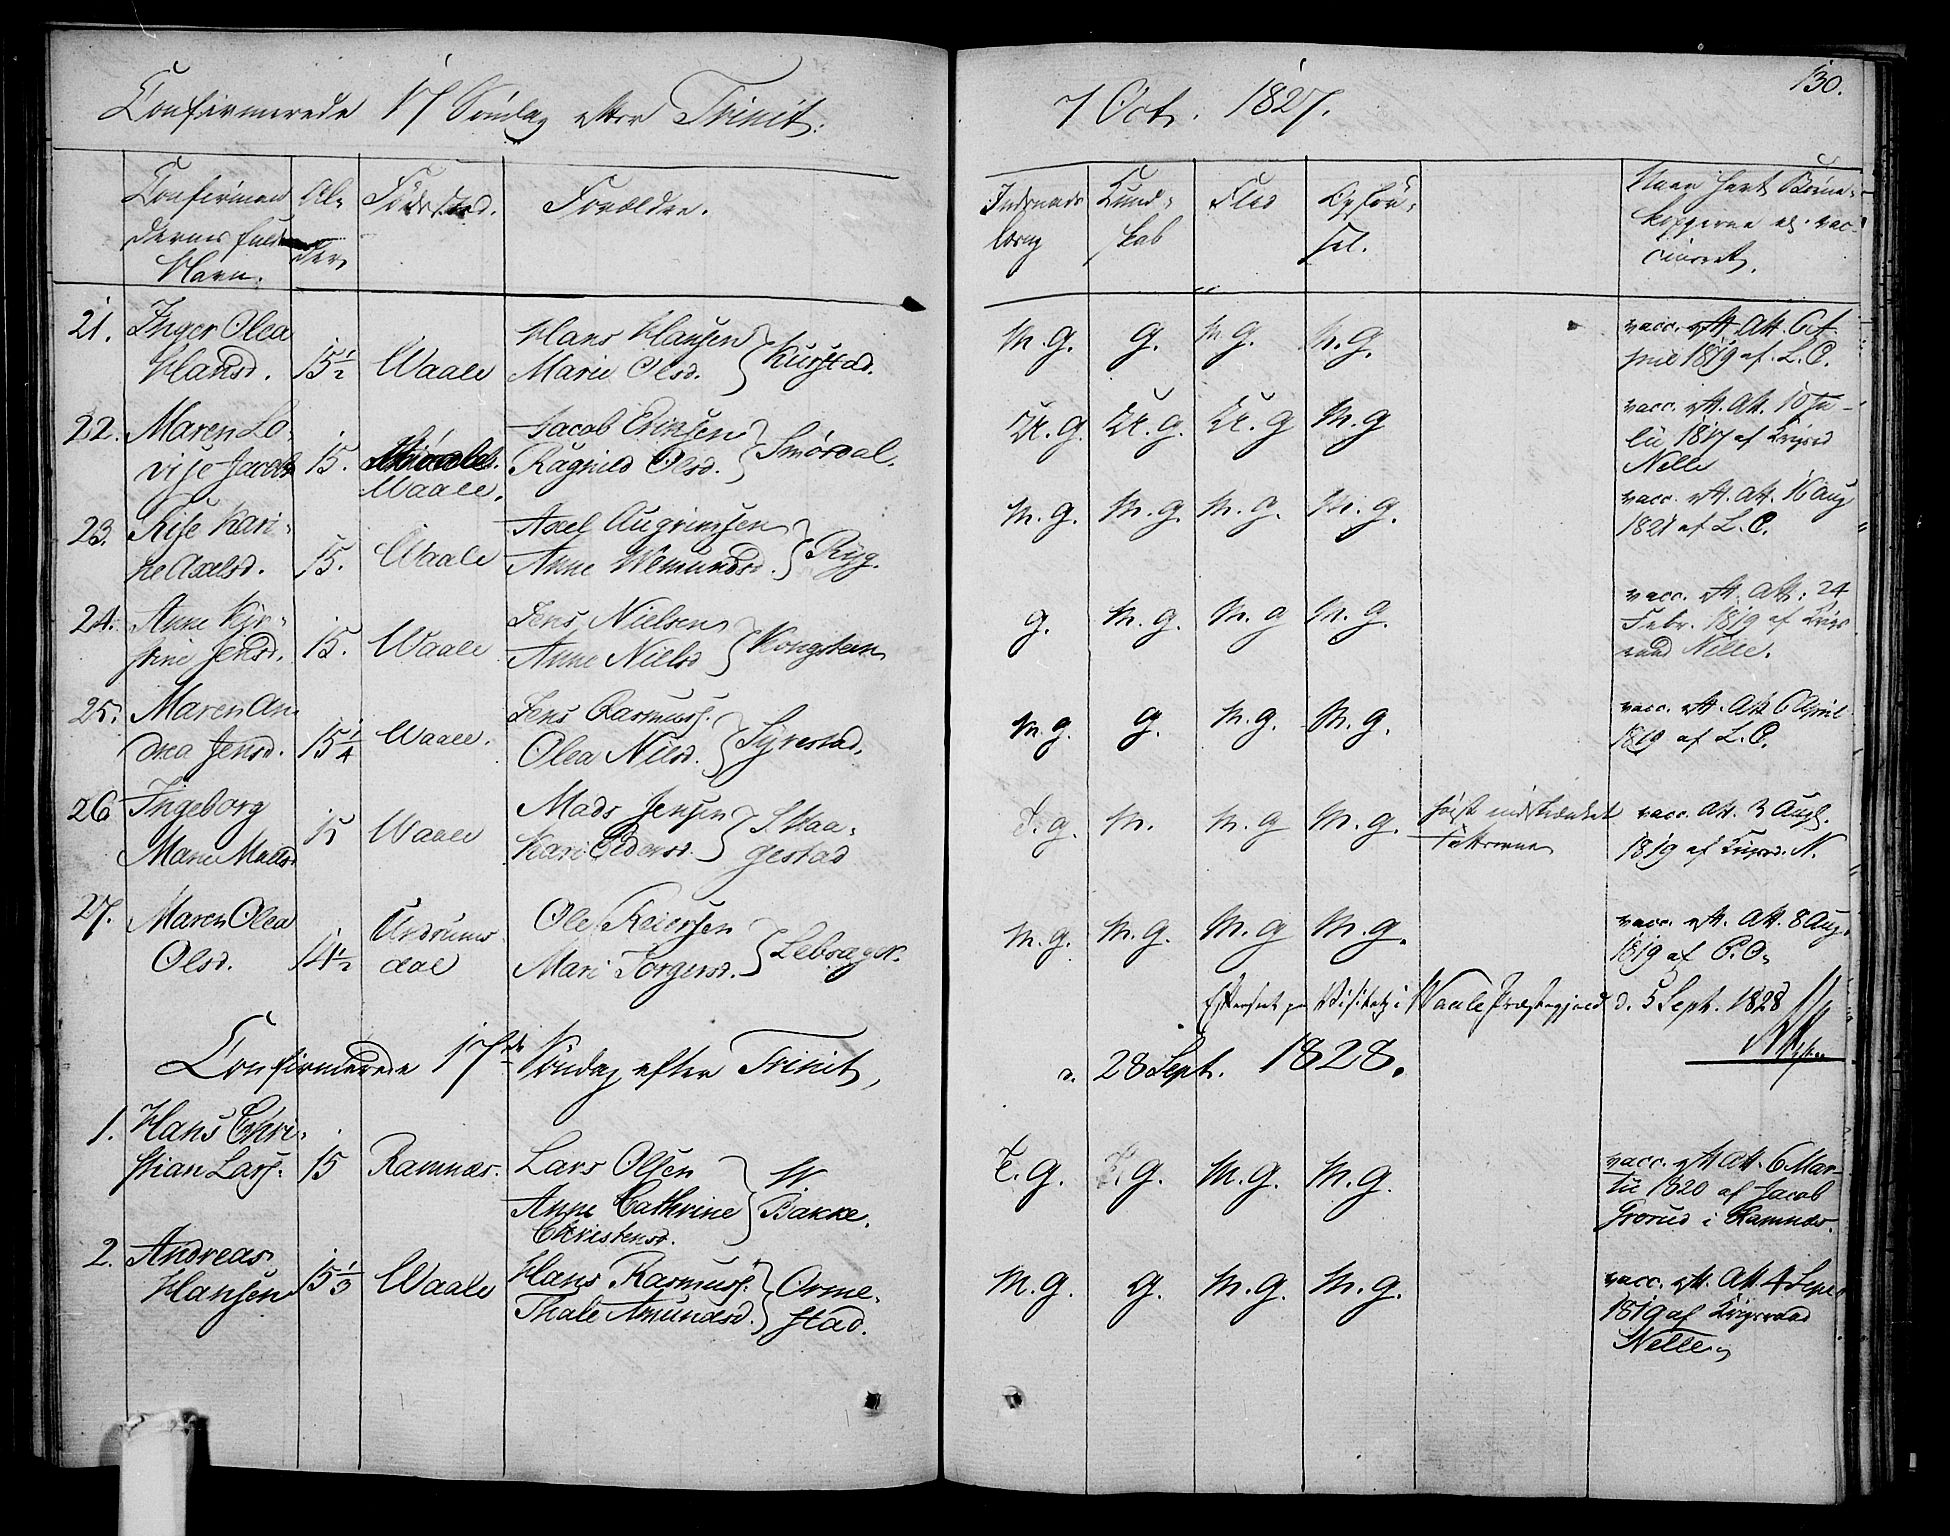 130.
Confirmerede 17 Søndag efter Trinit: 7 Oct. 1827.
Confirmandernes fulde Navn. Alder Fødested. Forældre. Indenadslæsning Kundskab Flid Opførsel. Naar havt Børnekopperne el. vaccineret.
21. Inger Olea Hansd. 15½ Waale Hans Hansen Marie Olsd. } Kurstad. M.G. G. M.G. M.G. vacc. Att. 6 April 1819 af L. O.
22. Maren Lovise Jacobs 15. Waale. Jacob Erensen Ragnild Olsd. } Smørdal. Uk. G. Uk. G. Uk. G M.G vacc. Att. 10 Julii 1817 af Krigsrd Nelle
23. Karine Axelsd. 15. Waale Axel Augrimsen Anne Wemundsd. } Ryg. M.G. M.G. M.G. M.G. vacc. Att. 16 Aug 1821 af L. O.
24. Anne Kirstine Jensd. 15. Waale Jens Nielsen Anne Nielsd } Kongsteen G. M.G. M.G M.G. vacc. Att. 24 Febr. 1819 af Krigsraad Nelle.
25. Maren Andrea Jensd. 15¼ Waale. Jens Rasmuss. Olea Nilsd. } Syrestad. M.G. G. M.G. M.G. vacc. Att 6 April 1819 af L. O.
26 Ingeborg Marie Madsd 15 Waale Mads Jensen Kari Pedersd. } S. Haagestad T.G. M. M.G M.G. høist indskrænket vacc. Att. 3 Aug. 1819 af Krigsrd. N.
27. Maren Olea Olsd. 14½ Undrumsdal Ole Reiersen Mari Torgersd. } Lebsager. M.G. M.G. M.G M.G. vacc. Att. 8 Aug. 1819 af O. O.
Efterseet paa Visitatz i Waale Præstegjeld d. 5 Sept. 1828
Confirmerede 17de Søndag efter Trinit, d. 28 Sept. 1828.
1. Hans Christian Lars. 15 Ramnæs. Lars Olsen Anne Cathrine Christensd. } N Bakke. T.G. T.G. M.G. M.G. vacc. Att. 6 Martii 1820 af Jacob Grorud i Ramnæs.
2. Andreas Hansen 15⅓ Waale Hans Rasmuss. Thale Amundsd. } Ormestad. M.G. G. M.G. M.G. vacc. Att. 4 Sept 1819 af Krigsraad Nelle